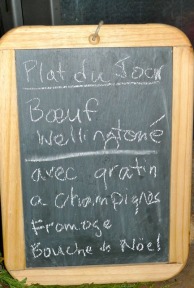 Plat du Jour
Bœuf
Wellingtoné
avec gratin
a Champignes
Fromage
Bouche de Nöel